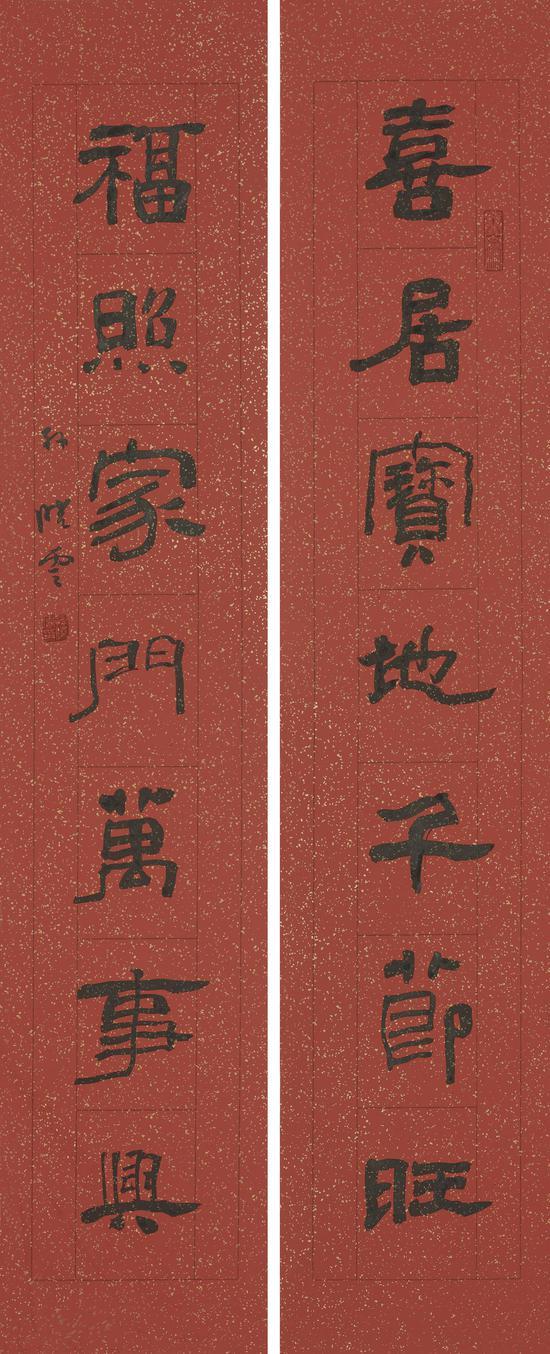 喜居寶地千節旺
福照家門萬事興
孫曉雲